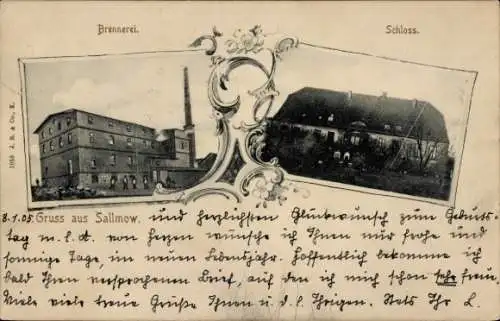 Brennerei.
Schloss.
1058 J. B. & Co., E.
8.1.05. Gruss aus Sallmow. und herzlichsten Glückwunsch zum Geburts-
tag m. l. d. von Herzen wünsche ich Ihnen nur frohe und
sonnige Tage, im neuen Lebensjahr. Hoffentlich bekomme ich
bald Ihren versprochenen Brief, auf den ich mich schon sehr freue.
Viele viele treue Grüße Ihnen u. d. l. Ihrigen. Stets Ihr L.